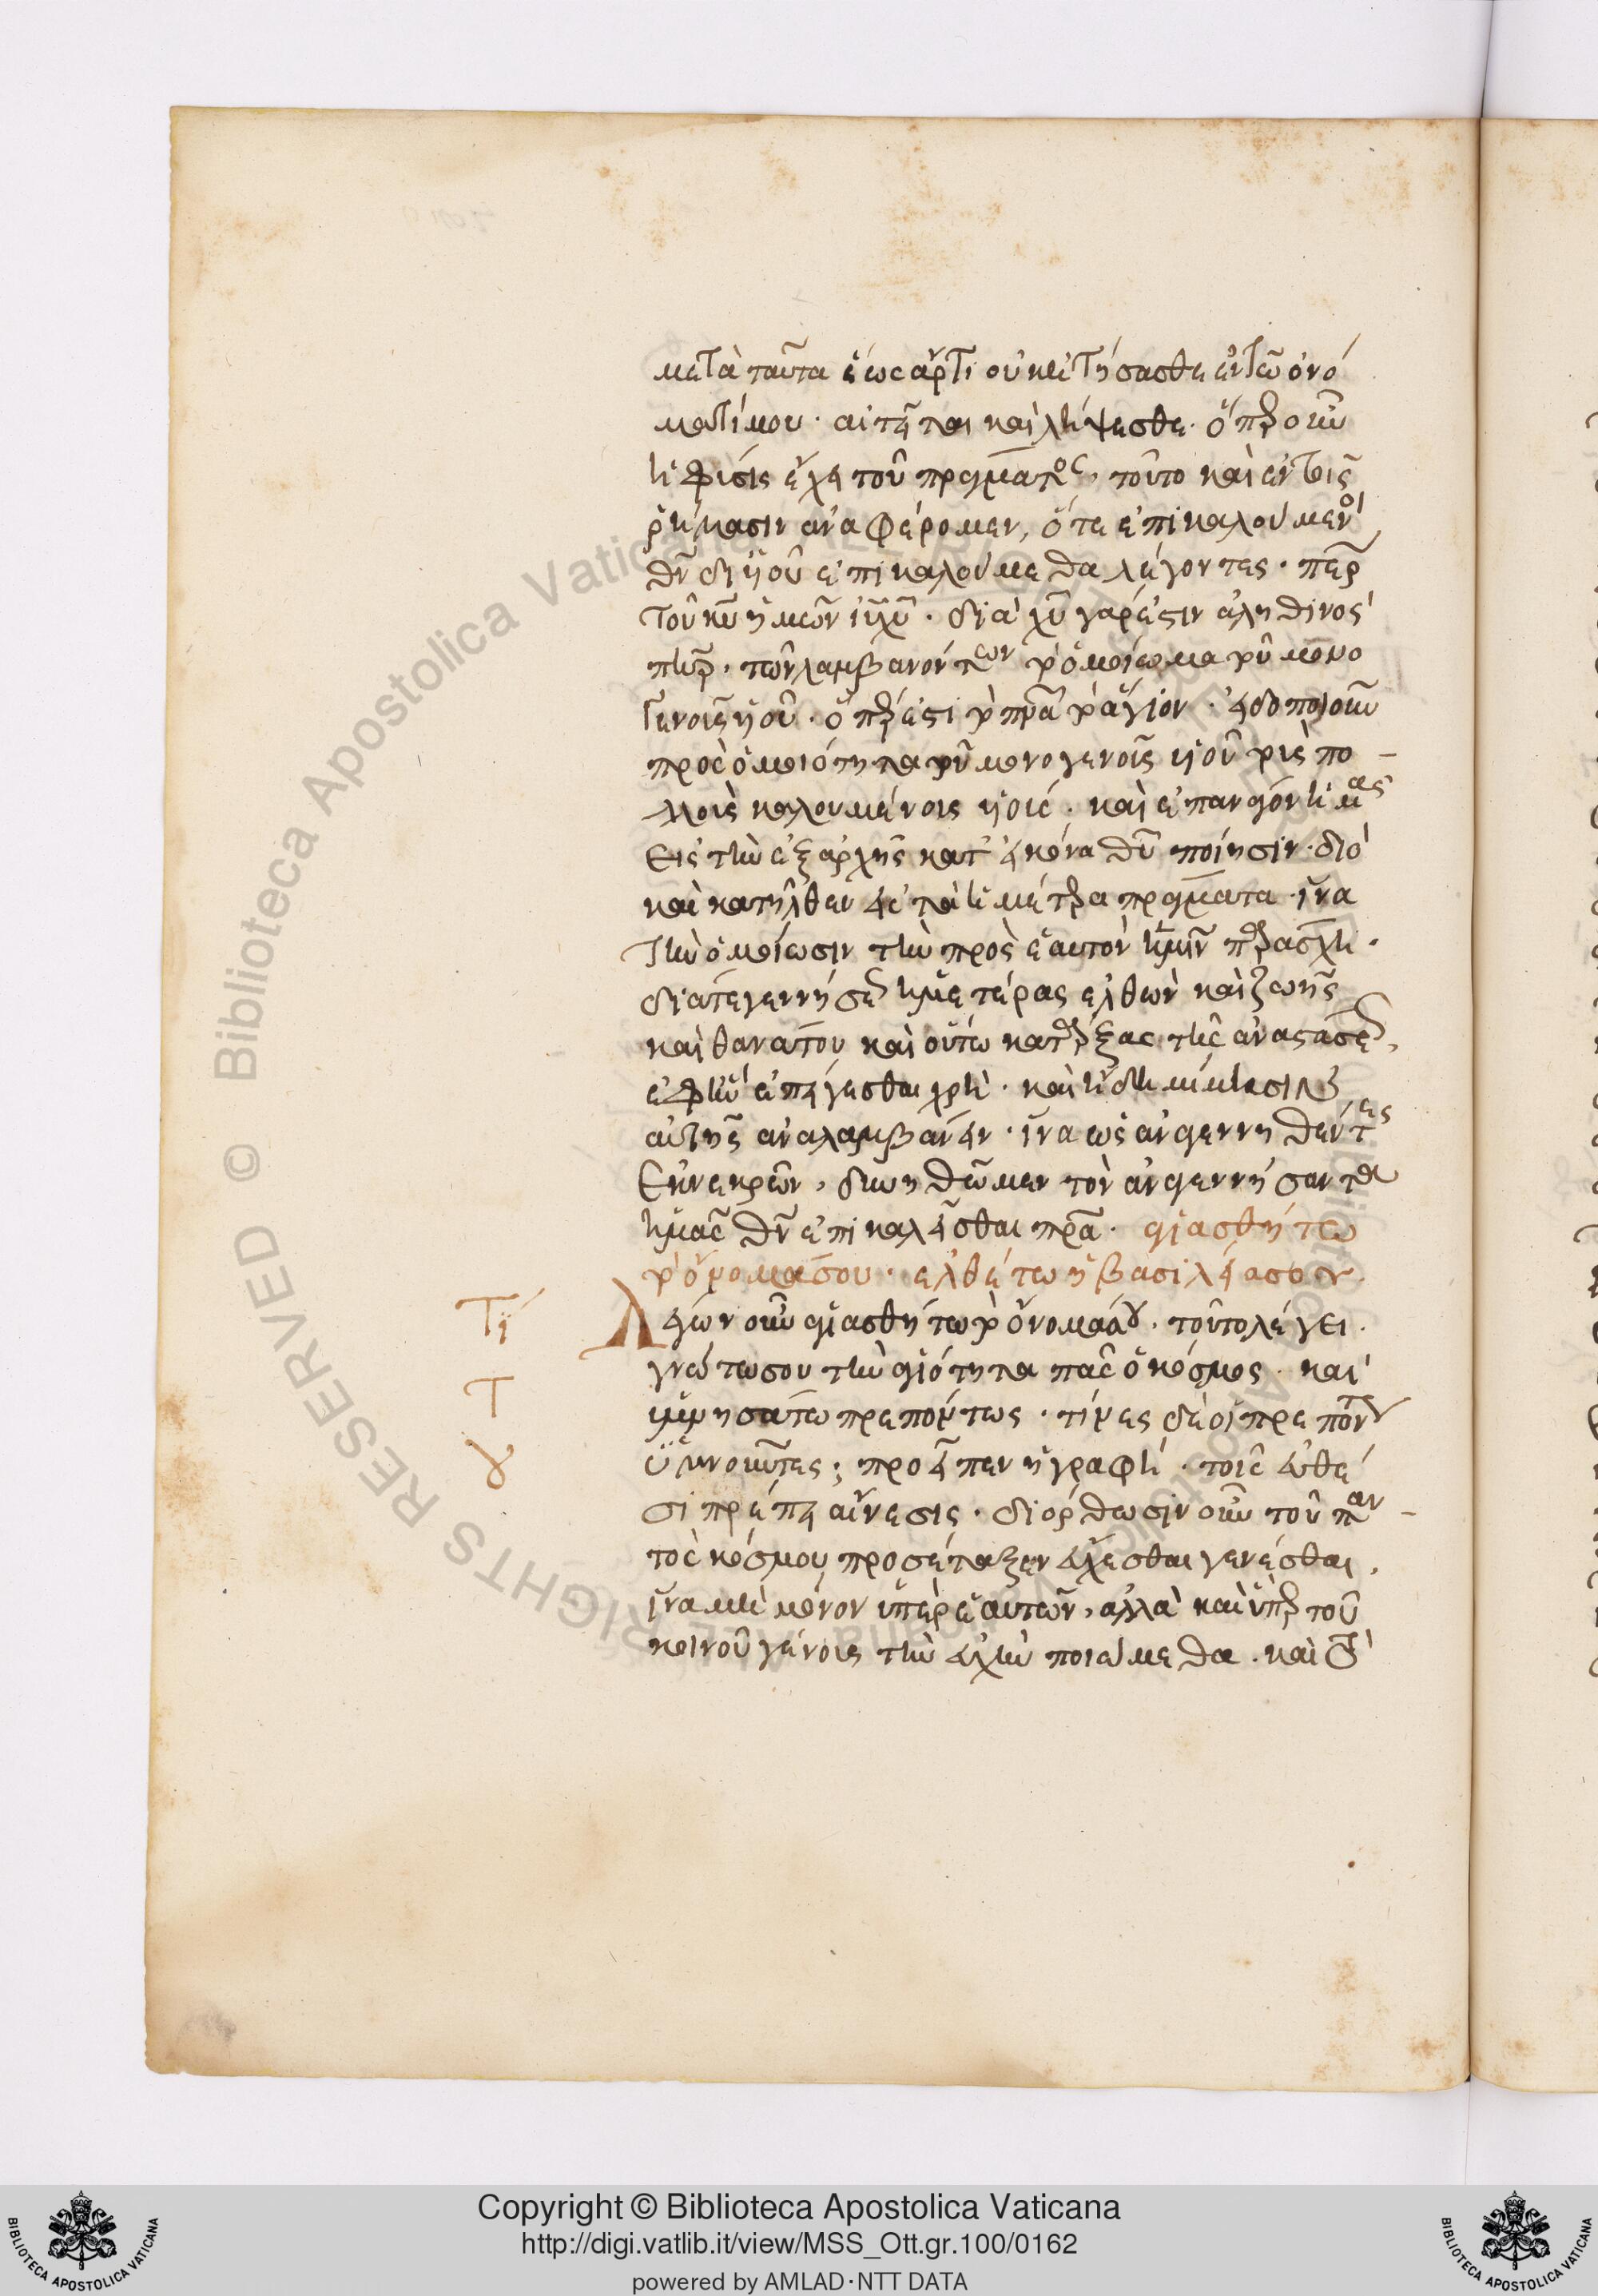 μετὰ ταῦτα ἕως ἄρτι οὐκ ἠτήσασθε ἐν τῶ ὀνό
ματί μου· αἰτεῖται καὶ λήψεσθε· ὅπερ οὖν
ἡ φύσις ἔχει τοῦ πράγματος, τοῦτο καὶ ἐν τοῖς
ῥήμασιν ἀναφέρομεν, ὅτε ἐπικαλούμενοι
θν δι υἱοῦ ἐπικαλούμεθα λέγοντες· περ
τοῦ κυ ἡμῶν ιυ χυ· διὰ χυ γάρ ἐστιν ἀληθινὸς
πηρ, τῶν λαμβανόντων τὸ ὁμοίωμα τοῦ μονο
γενοῦς υἱοῦ· ὅπερ ἐστι τὸ πνα τὸ ἅγιον· εἰδοποιοῦν
πρὸς ὁμοιότητα τοῦ μονογενοῦς υἱοῦ τοῖς πο-
λλοῖς καλουμένοις υἱοῖς· καὶ ἐπανάγον ἡμᾶς
εἰς τὴν ἐξαρχῆς κατ' εἰκόνα θυ ποίησιν· διὸ
καὶ κατῆλθεν εἰς τὰ ἡμέτερα πράγματα· ἵνα
τὴν ὁμοίωσιν τὴν πρὸς ἑαυτὸν ἡμῖν παράσχη·
διάτε γεννήσεως ἡμετέρας ἐλθὼν καὶ ζωῆς
καὶ θανάτου καὶ οὕτω κατάρξας τῆς ἀναστάσεως,
αὐτῆς ἀναλαμβάνειν· ἵνα ὡς ἀναγεννηθέντες
ἐκ νεκρῶν, δυνηθῶμεν τὸν ἀναγεννήσαντα
ἡμᾶς θν ἐπικαλεῖσθαι πρα· ἁγιασθήτω
τὸ ὄνομά σου· ἐλθέτω ἡ βασιλεία σου·
Τί Λέγων οὖν ἁγιασθήτω τὸ ὄνομά σου· τοῦτο λέγει·
γνώτω σου τὴν ἁγιότητα πᾶς ὁ κόσμος· καὶ
Τ ὑμνησάτω πρεπόντως· τίνες δὲ οἱ πρεπόντως
ου ὑμνοῦντες; προεῖπεν ἡ γραφή· τοῖς εὐθέ
σι πρέπει αἴνεσις· διόρθωσιν οὖν τοῦ παν-
τὸς κόσμου προσέταξεν εὔχεσθαι γενέσθαι,
ἵνα μὴ μόνον ὑπὲρ ἑαυτῶν, ἀλλὰ καὶ ὑπὲρ τοῦ
κοινοῦ γένους τὴν εὐχὴν ποιώμεθα· καὶ
Copyright © Biblioteca Apostolica Vaticana
http://digi.vatlib.it/view/MSS_Ott.gr.100/0162
powered by AMLAD·NTT DATA
BIBLIOTECA APOSTOLICA VATICANA
BIBLIOTECA APOSTOLICA VATICANA
© Biblioteca Apostolica Vaticana ALL RIGHTS RESERVED